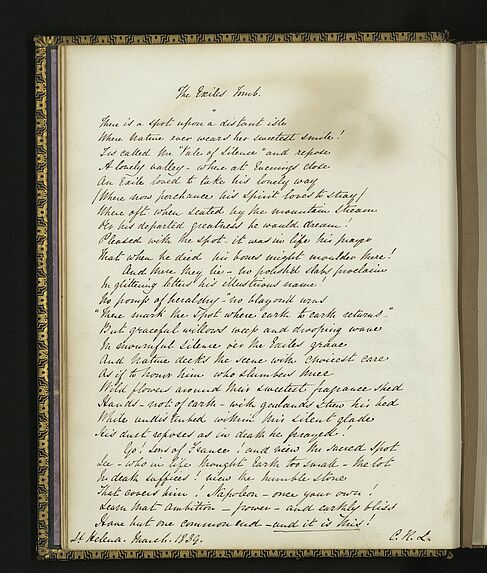 The Exiles Tomb.
There is a spot upon a distant isle
Where Nature ever wears her sweetest smile!
Tis called the "Vale of Silence" and repose
A lonely valley - where at Evenings close
An Exile loved to take his lonely way
(Where now perchance his Spirit loves to stray)
Where oft when seated by the mountain stream
O'er his departed greatness he would dream!
Pleased with the spot it was in life his prayer
That when he died his bones might moulder there!
And there they lie - no polished slabs proclaim
In glittering letters his illustrious name!
No pomp of heraldry - no blazoned urns
"There mark the Spot where earth to earth returns"
But graceful willows weep and drooping wave
In mournful Silence o'er the Exiles grave
And Nature decks the scene with choicest care
As if to honor him who slumbers there
Wild flowers around their sweetest fragrance shed
Hands - not of earth - with garlands strew his bed
While undisturbed within this silent glade
His dust reposes as in death he prayed!
Go! Sons of France! and view the sacred Spot
See - who in life thought Earth too small - the lot
In death suffices! view the humble stone
That covers him! Napoleon - once your own!
Learn that Ambition - power - and earthly bliss
Have but one common end - and it is this!
St Helena. March. 1839.
C. H. L.